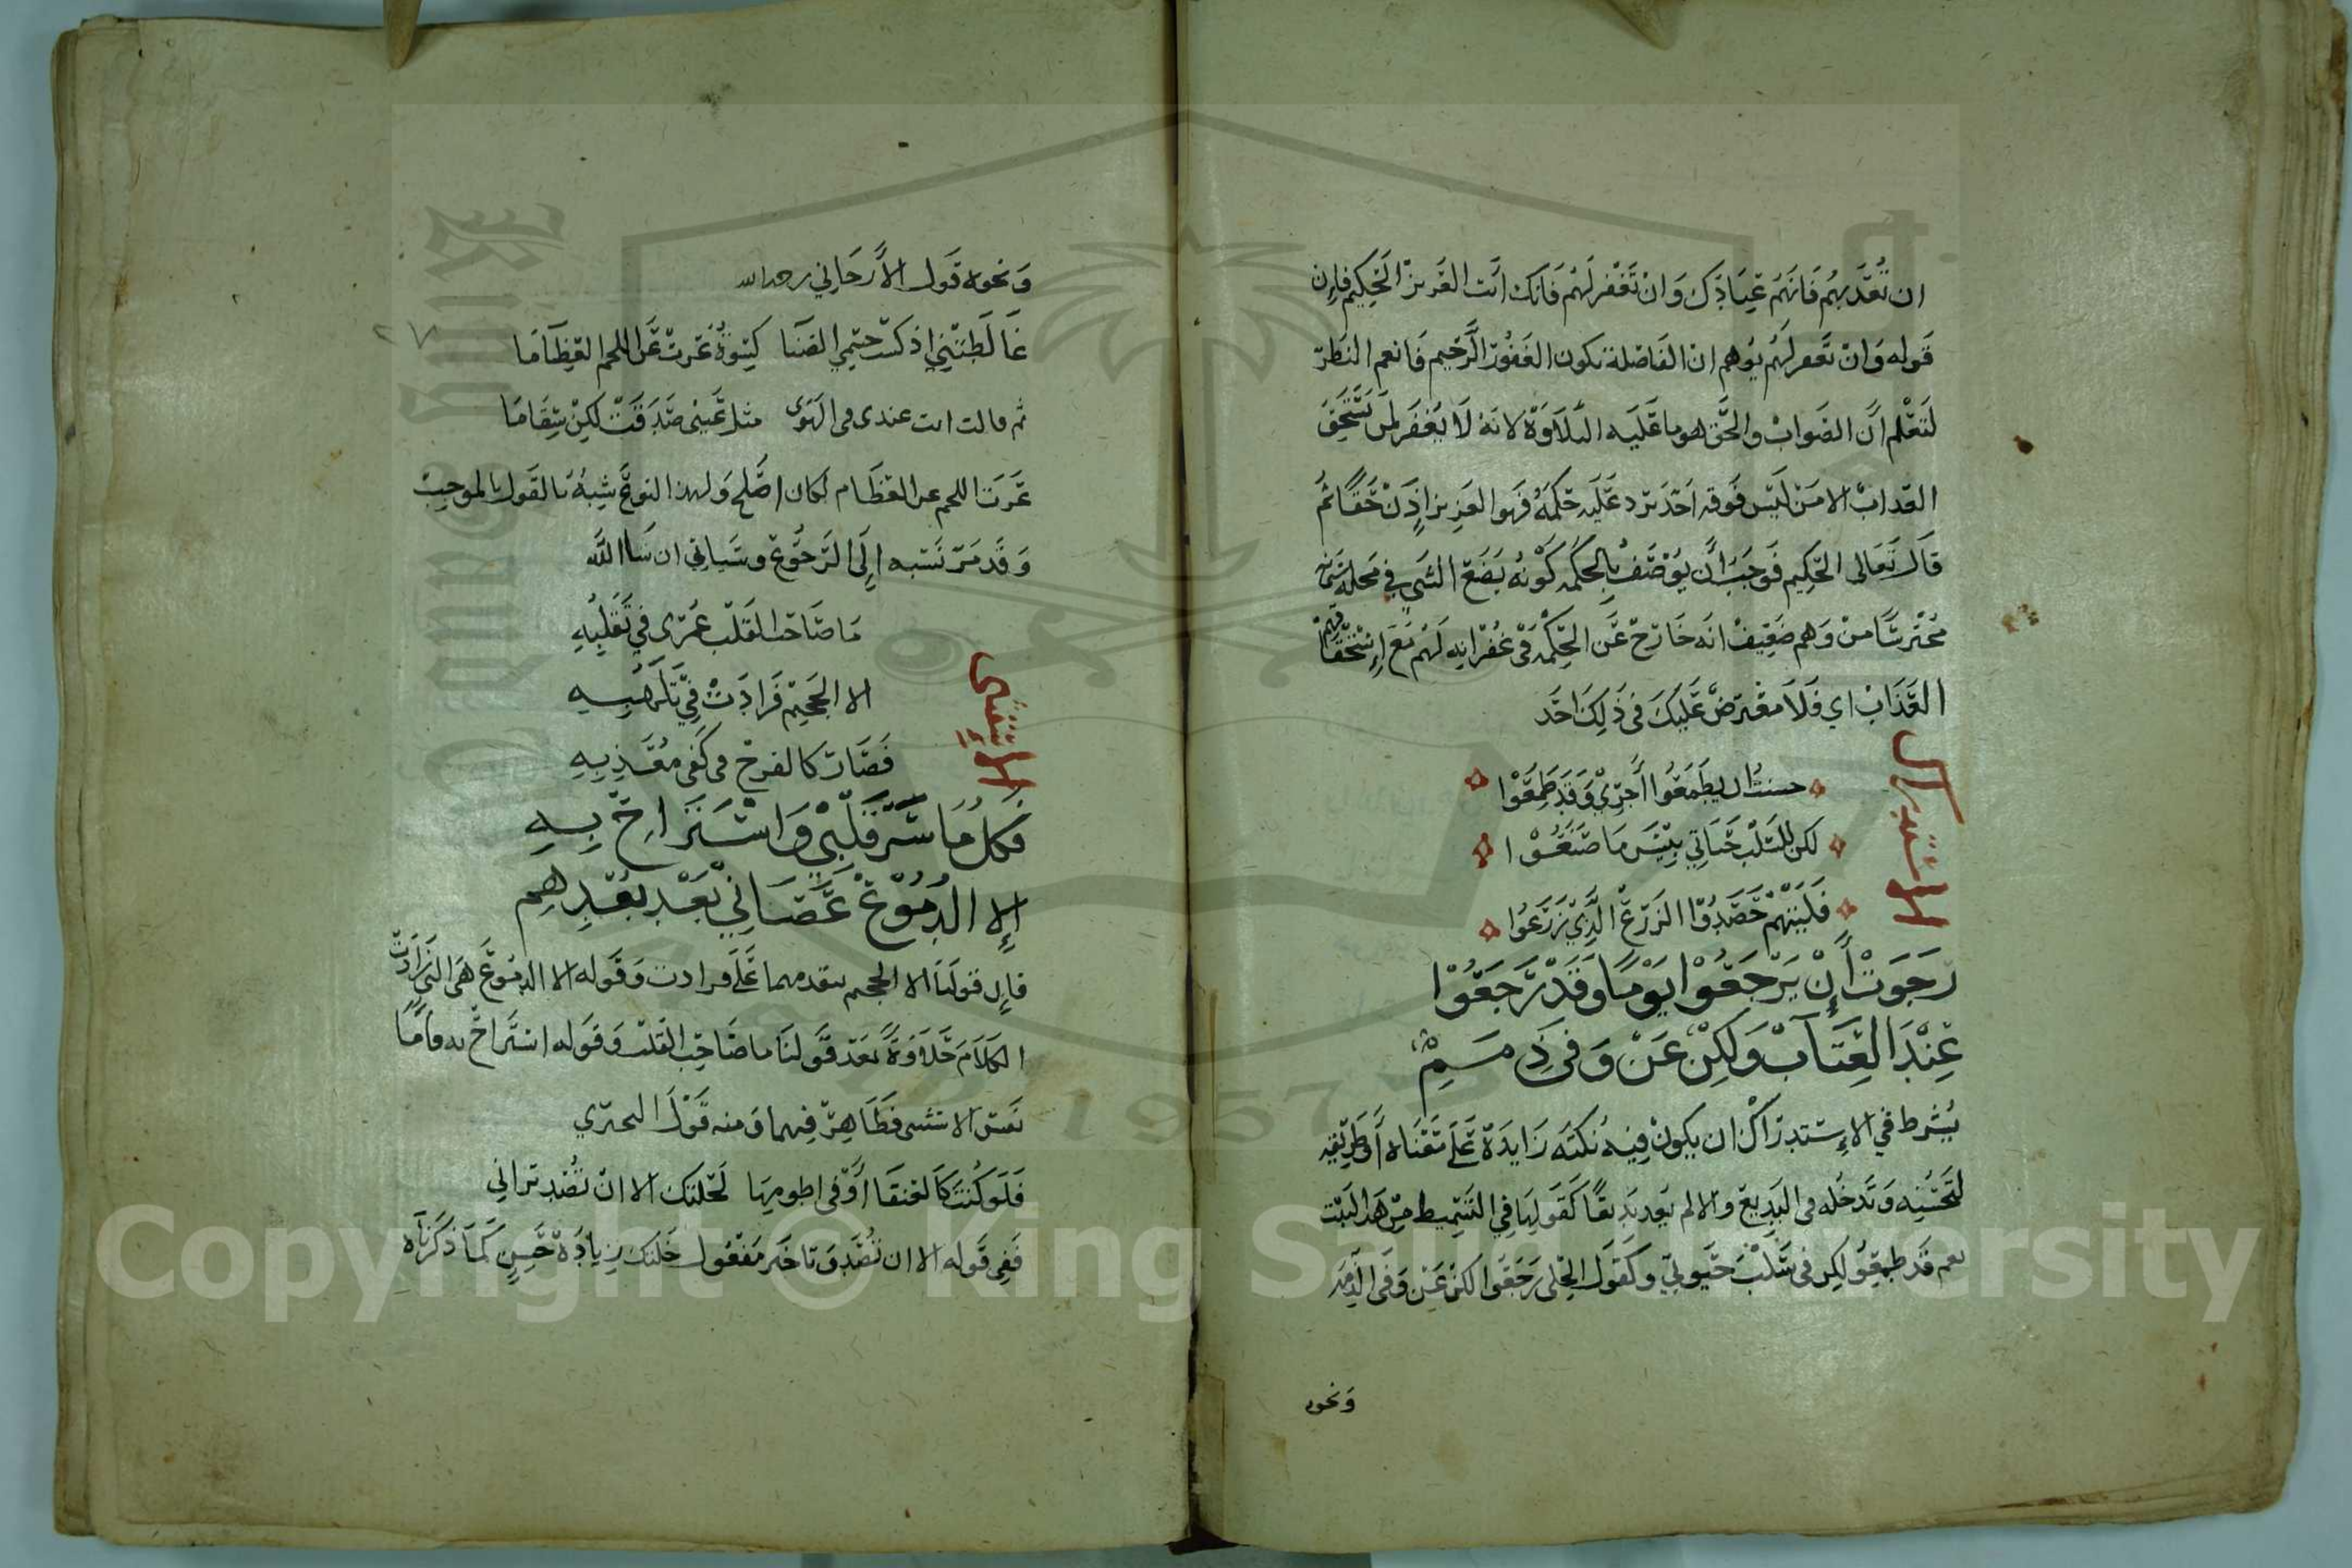 ان تُعَذِّبهُم فَانَهُم عِبَادَك وَانْ تَغْفِر لَهُم فَانَك انَت العَزيزُ الحَكِيم فإن
قَوله وَانْ تَغفر لَهُم يُوهم انْ الفَاصلة تكون الغَفُورُ الرَّحيم فَانعم النَظَر
لتَعْلم انَّ الصَوابْ والحَّق هو ما عَلَيه التلَاوَة لانَهُ لَا يَغفِر لمَن يَستَحِق
العَداب الا مَنْ لَيسَ فَوقه احَد يَرد عَلَيه حُكمَهُ فَهو العَزيز اذَنْ حَقًا ثُم
قَالَ تَعَالى الحَكِيم فَوجَبَ أن يوُصَف بالحِكمه كَوْنهُ يَضَع الشَي في محله
مُحْترسًا منْ وَهم ضَعِيف انَه خَارجْ عَن الحِكْمه في غُفرَانِه لَهُم مَع اِسْتحْقَاقهم
العَذَاب اي فَلاَ معْترضْ عَلَيكَ في ذَلِكَ احَد
الاستدراك
حسبتُ ان يطمَعُوا أجرِي وَقَد طَمِعُوا
لكن لِسَلْب حَيَاتِي بِيسَ مَا صَنَعُوا
فَلَيتهمْ حَصَدُوا الزَرْعَ الَّذِي زَرَعُوا
رَجَوتُ أنْ يَرْجعُوا يَوْمًا وَقَدْ رَجَعُوا
عِنْدَ العِتَابْ وَلكِنْ عَنْ وَفى ذِمَمِي
يُشرط في الاِسْتدرَاك ان يكونْ فِيه نُكتَه زَايدَة عَلَى مَعْنَاه أو طَريقه
لتحسُنِه وَتَدخُله في البَدِيع والا لم يعد بَدِيعًا كَقَولِهَا في التَسْمِيط مِن هَذا البَيت
نعم قَد طمعُوا لكِن في سَلْبَ حَيوتِي وكَقول الحِلي رَجَعُوا لكن عَن وَفى الذِمم
وَنحوه
وَنحوه قَول الأرَّجَاني رحمه الله
غَالَطَتنِي اذ كَسَت جسْمي الضَنا كِسْوةً عَرت عَن اللحم العِظَامَا
ثم قالت انت عندي في الهَوَى مثل عَيني صَدَقَتْ لكِنْ سِقَامَا
عَرَت اللحم عن العظَام لكان اصَلح وَلهذا النَوع شِبهُ بالقَول بالموجب
وَقَد مَر نسَبه إلَى الرجُوع وسَياتي ان شاالله
الاستثنى
مَا صَاحَب القَلب عُمْرِي في تَقَلُّبِهِ
الا الجَحِيم فَزادَت فِي تَلَهُّبِهِ
فَصَارَ كالفرخ في كَفى مُعَذِبِهِ
فكلُ مَا سَرَّ قَلْبِي وَاسْتَرَاحَ بِهِ
إلا الدُمُوعْ عَصَانِي بَعْدَ بُعْدِهِم
فإن قولَنَا الا الجحيم بتقدمهما عَلَى فزادت وَقَوله الا الدمُوع هي التي زَادَت
الكَلَامَ حَلاوَةً بَعَد قَولنا ما صَاحَب القَلب وَقَوله استَراحَ به وَامَا
نفس الاستثنى فظَاهِر فِيهما وَمنه قَوْلَ البحتري
فَلَوكُنتَ كَالعَنقَا أوْ في اطومِهَا لَخلتك الا انْ تُصَد تراني
فَفِي قَوله الا ان تُصَد وَتاخَر مَفْعُول خَلتك زِيادَة حَسن كَمَا ذكَرْنَاه
٢٧
Copyright © King Saud University
1957